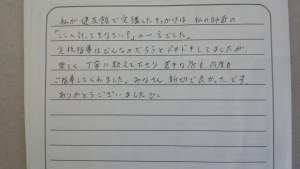 私が運友館で受講したきっかけは、私の師匠の
「ここへ行してきなさい!」の一言でした。
実技指導はどんなのだろうとドキドキしてましたが、
楽しく、丁寧に教えて下さり、苦手な所も、何度も
ご指導してくれました。みなさん、親切で良かったです。
ありがとうございました